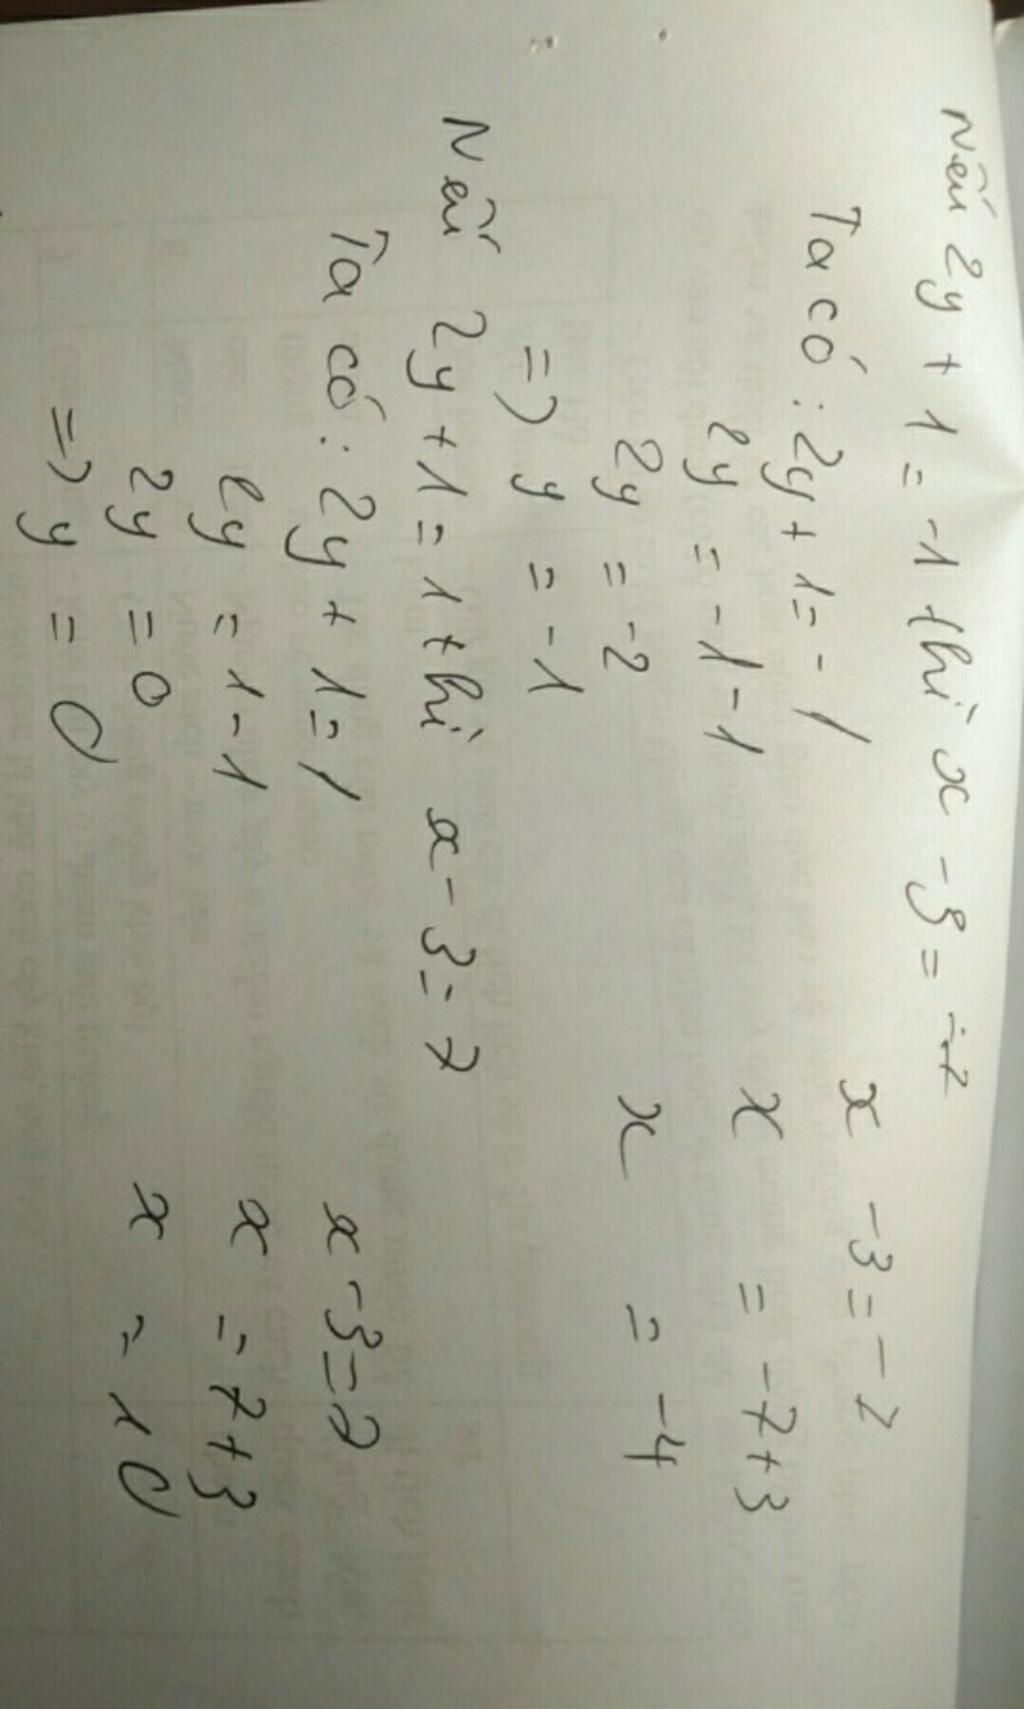 Nếu 2y + 1 = -1 thì x - 3 = -7
Ta có : 2y + 1 = -1 x - 3 = -7
2y = -1 - 1 x = -7 + 3
2y = -2 x = -4
=> y = -1
Nếu 2y + 1 = 1 thì x - 3 = 7
Ta có : 2y + 1 = 1 x - 3 = 7
2y = 1 - 1 x = 7 + 3
2y = 0 x = 10
=> y = 0